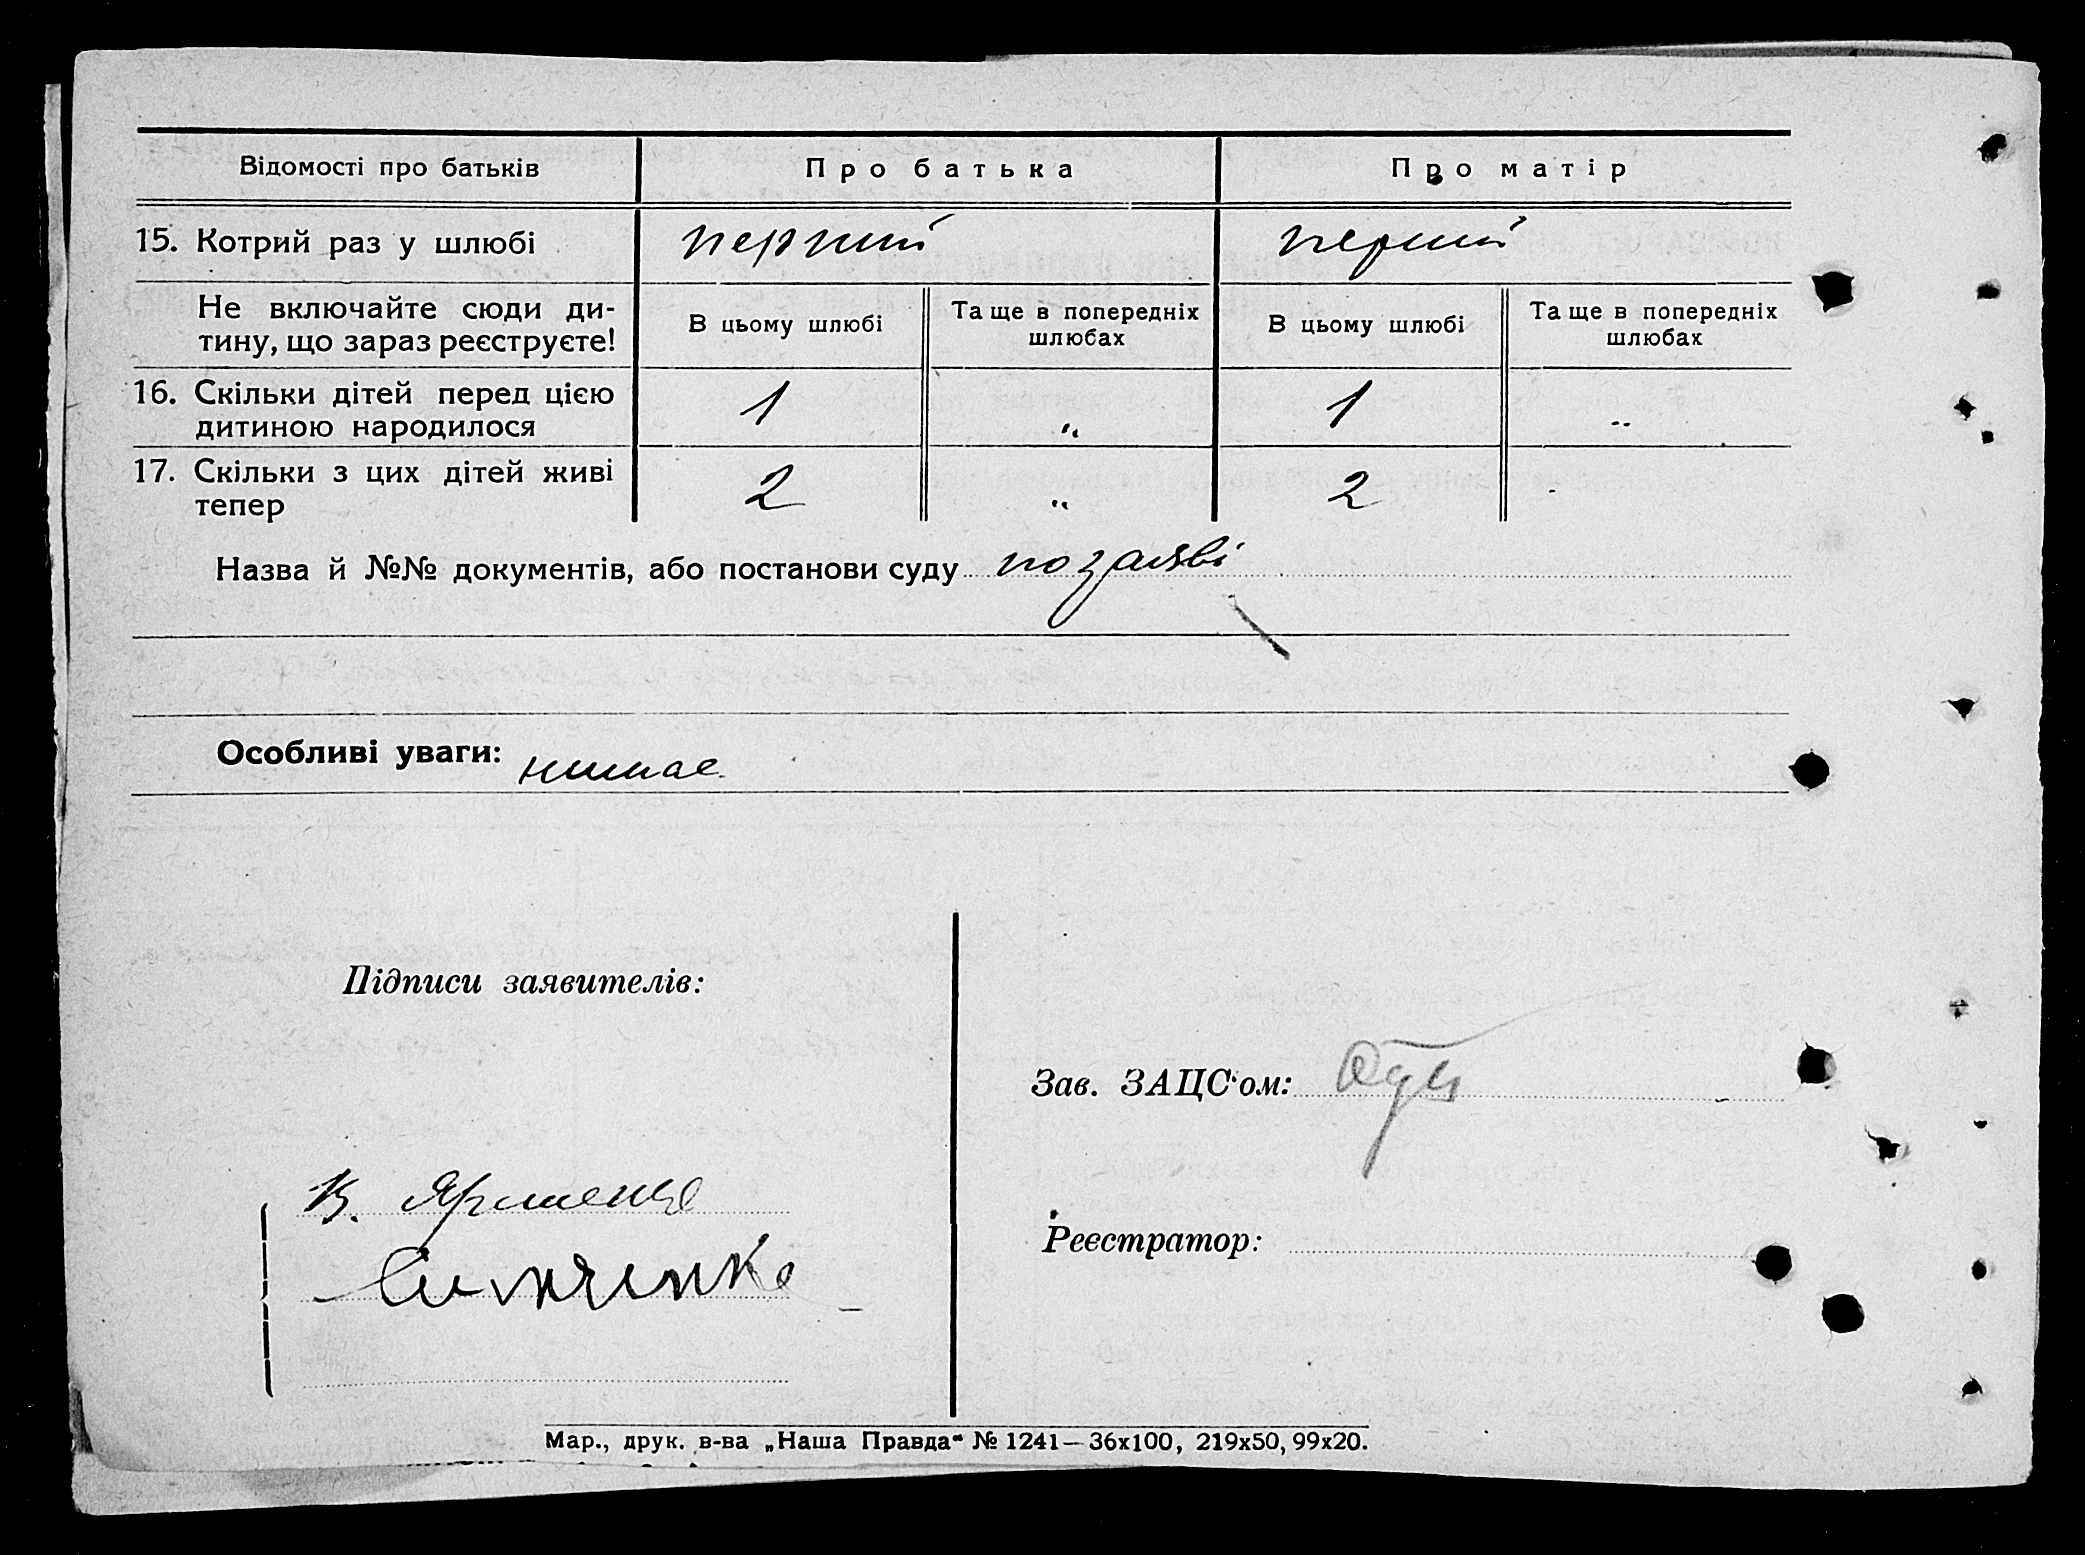 Відомості про батьків
Про батька
Про матір
15. Котрий раз у шлюбі
перший
перший
Не включайте сюди ди-
тину, що зараз реєструєте!
В цьому шлюбі
Та ще в попередніх
шлюбах
В цьому шлюбі
Та ще в попередніх
шлюбах
16. Скільки дітей перед цією
дитиною народилося
1
"
1
"
17. Скільки з цих дітей живі
тепер
2
"
2
Назва й №№ документів, або постанови суду по заяві
Особливі уваги: нимае
Підписи заявителів:
Зав. ЗАЦС'ом:
В.
Реєстратор:
Мар., друк. в-ва „Наша Правда" № 1241—36x100, 219x50, 99x20.